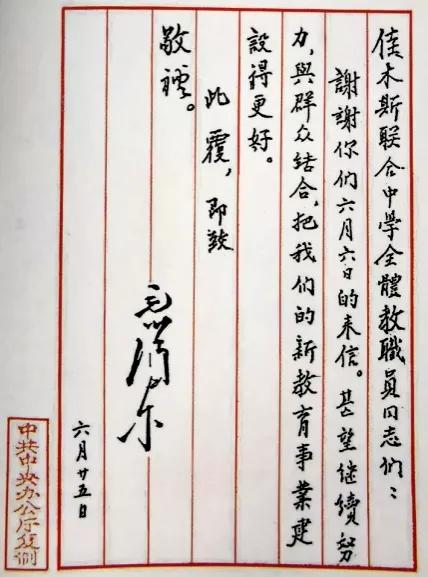 佳木斯联合中學全體教職員同志们：
謝謝你们六月六日的来信。甚望继續努
力，與群众结合，把我们的新教育事業建
設得更好。
此覆，即致
敬禮。
毛泽东
六月廿五日
中共中央办公厅复制